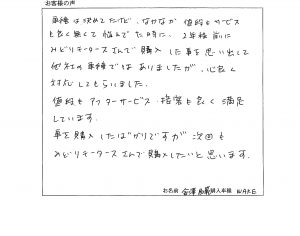 お客様の声
車種は決めてたけど、なかなか値段もサービス
も良く無くて悩んでた時に、2年程前に
みどりモータースさんで購入した事を思い出して
他社の車種ではありましたが、心良く
対応してもらいました。
値段もアフターサービス・接客も良くて満足
しています。
車を購入したばかりですが次回も
みどりモータースさんで購入したいと思います。
お名前 購入車種 WAKE